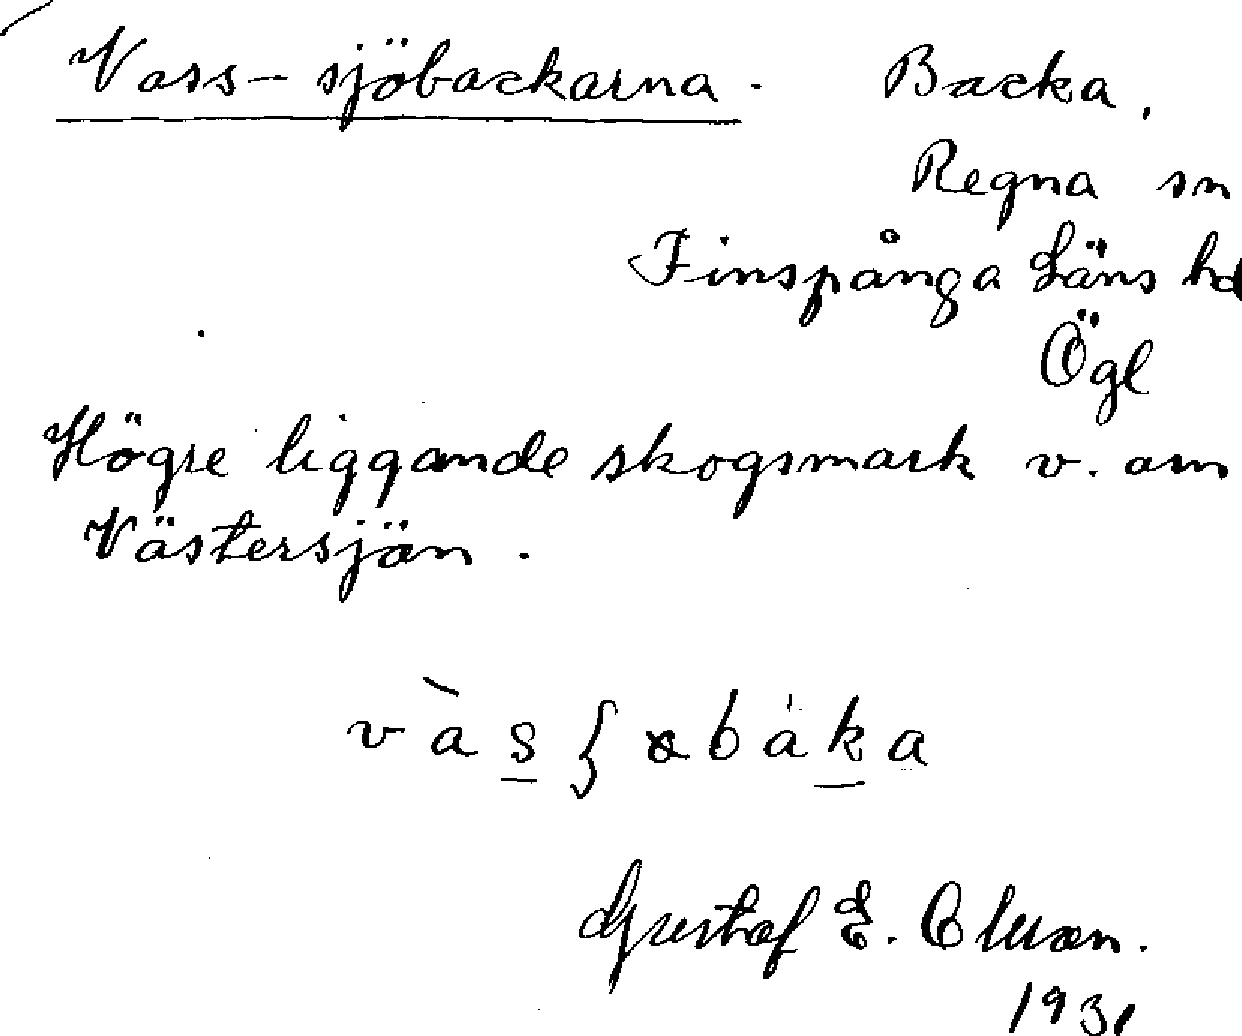 Vass-sjöbackarna. Backa,
Regna sn
Finspånga Läns hd
Ögl
Högre liggande skogsmark v. om
Västersjön.
Gustaf E.
1931